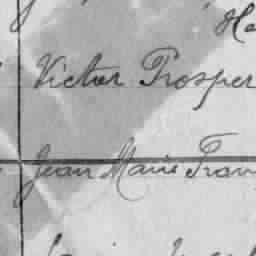 Ha
Victor Prosper
Jean Marie Fran